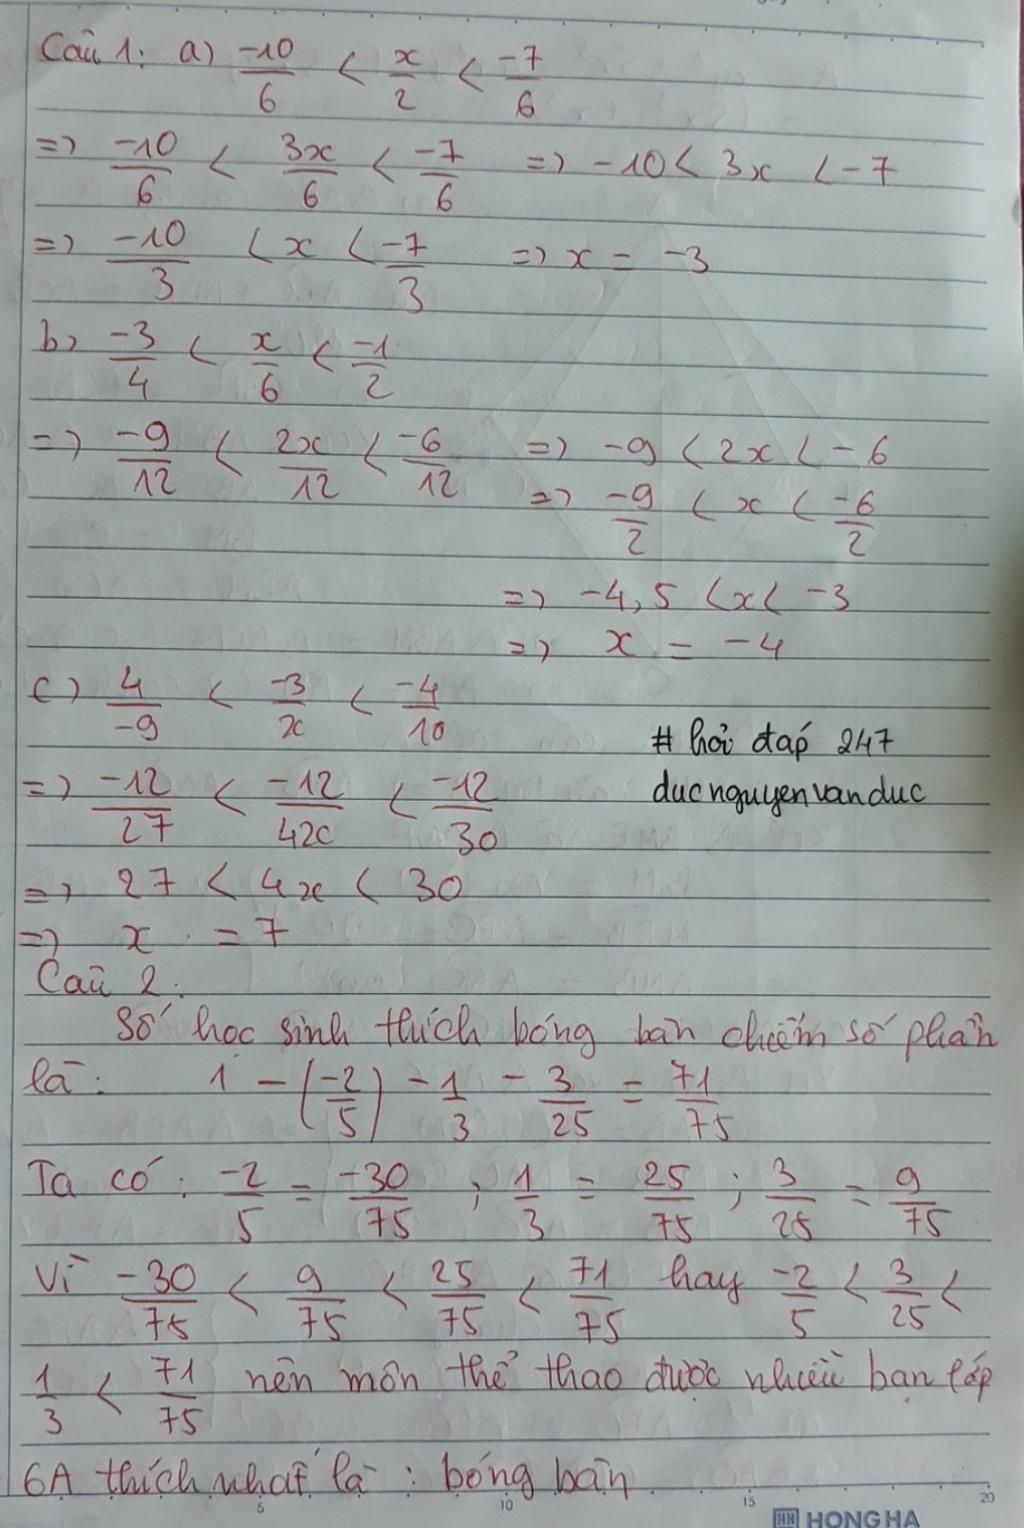 Câu 1: a) -10/6 < x/2 < -7/6
=> -10/6 < 3x/6 < -7/6 => -10 < 3x < -7
=> -10/3 < x < -7/3 => x = -3
b) -3/4 < x/6 < -1/2
=> -9/12 < 2x/12 < -6/12 => -9 < 2x < -6
=> -9/2 < x < -6/2
=> -4,5 < x < -3
=> x = -4
c) 4/-9 < -3/x < -4/10
# hỏi đáp 247
=> -12/27 < -12/4x < -12/30
ducnguyenvanduc
=> 27 < 4x < 30
=> x = 7
Câu 2:
Số học sinh thích bóng bàn chiếm số phần
là: 1 - (-2/5) - 1/3 - 3/25 = 71/75
Ta có: -2/5 = -30/75 ; 1/3 = 25/75 ; 3/25 = 9/75
Vì -30/75 < 9/75 < 25/75 < 71/75 hay -2/5 < 3/25 <
1/3 < 71/75 nên môn thể thao được nhiều bạn lớp
6A thích nhất là : bóng bàn
5 10 15 20
HH HONG HA